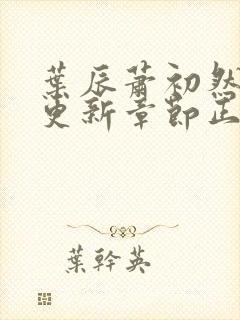 葉辰蕭初然
更新章節正
葉幹英